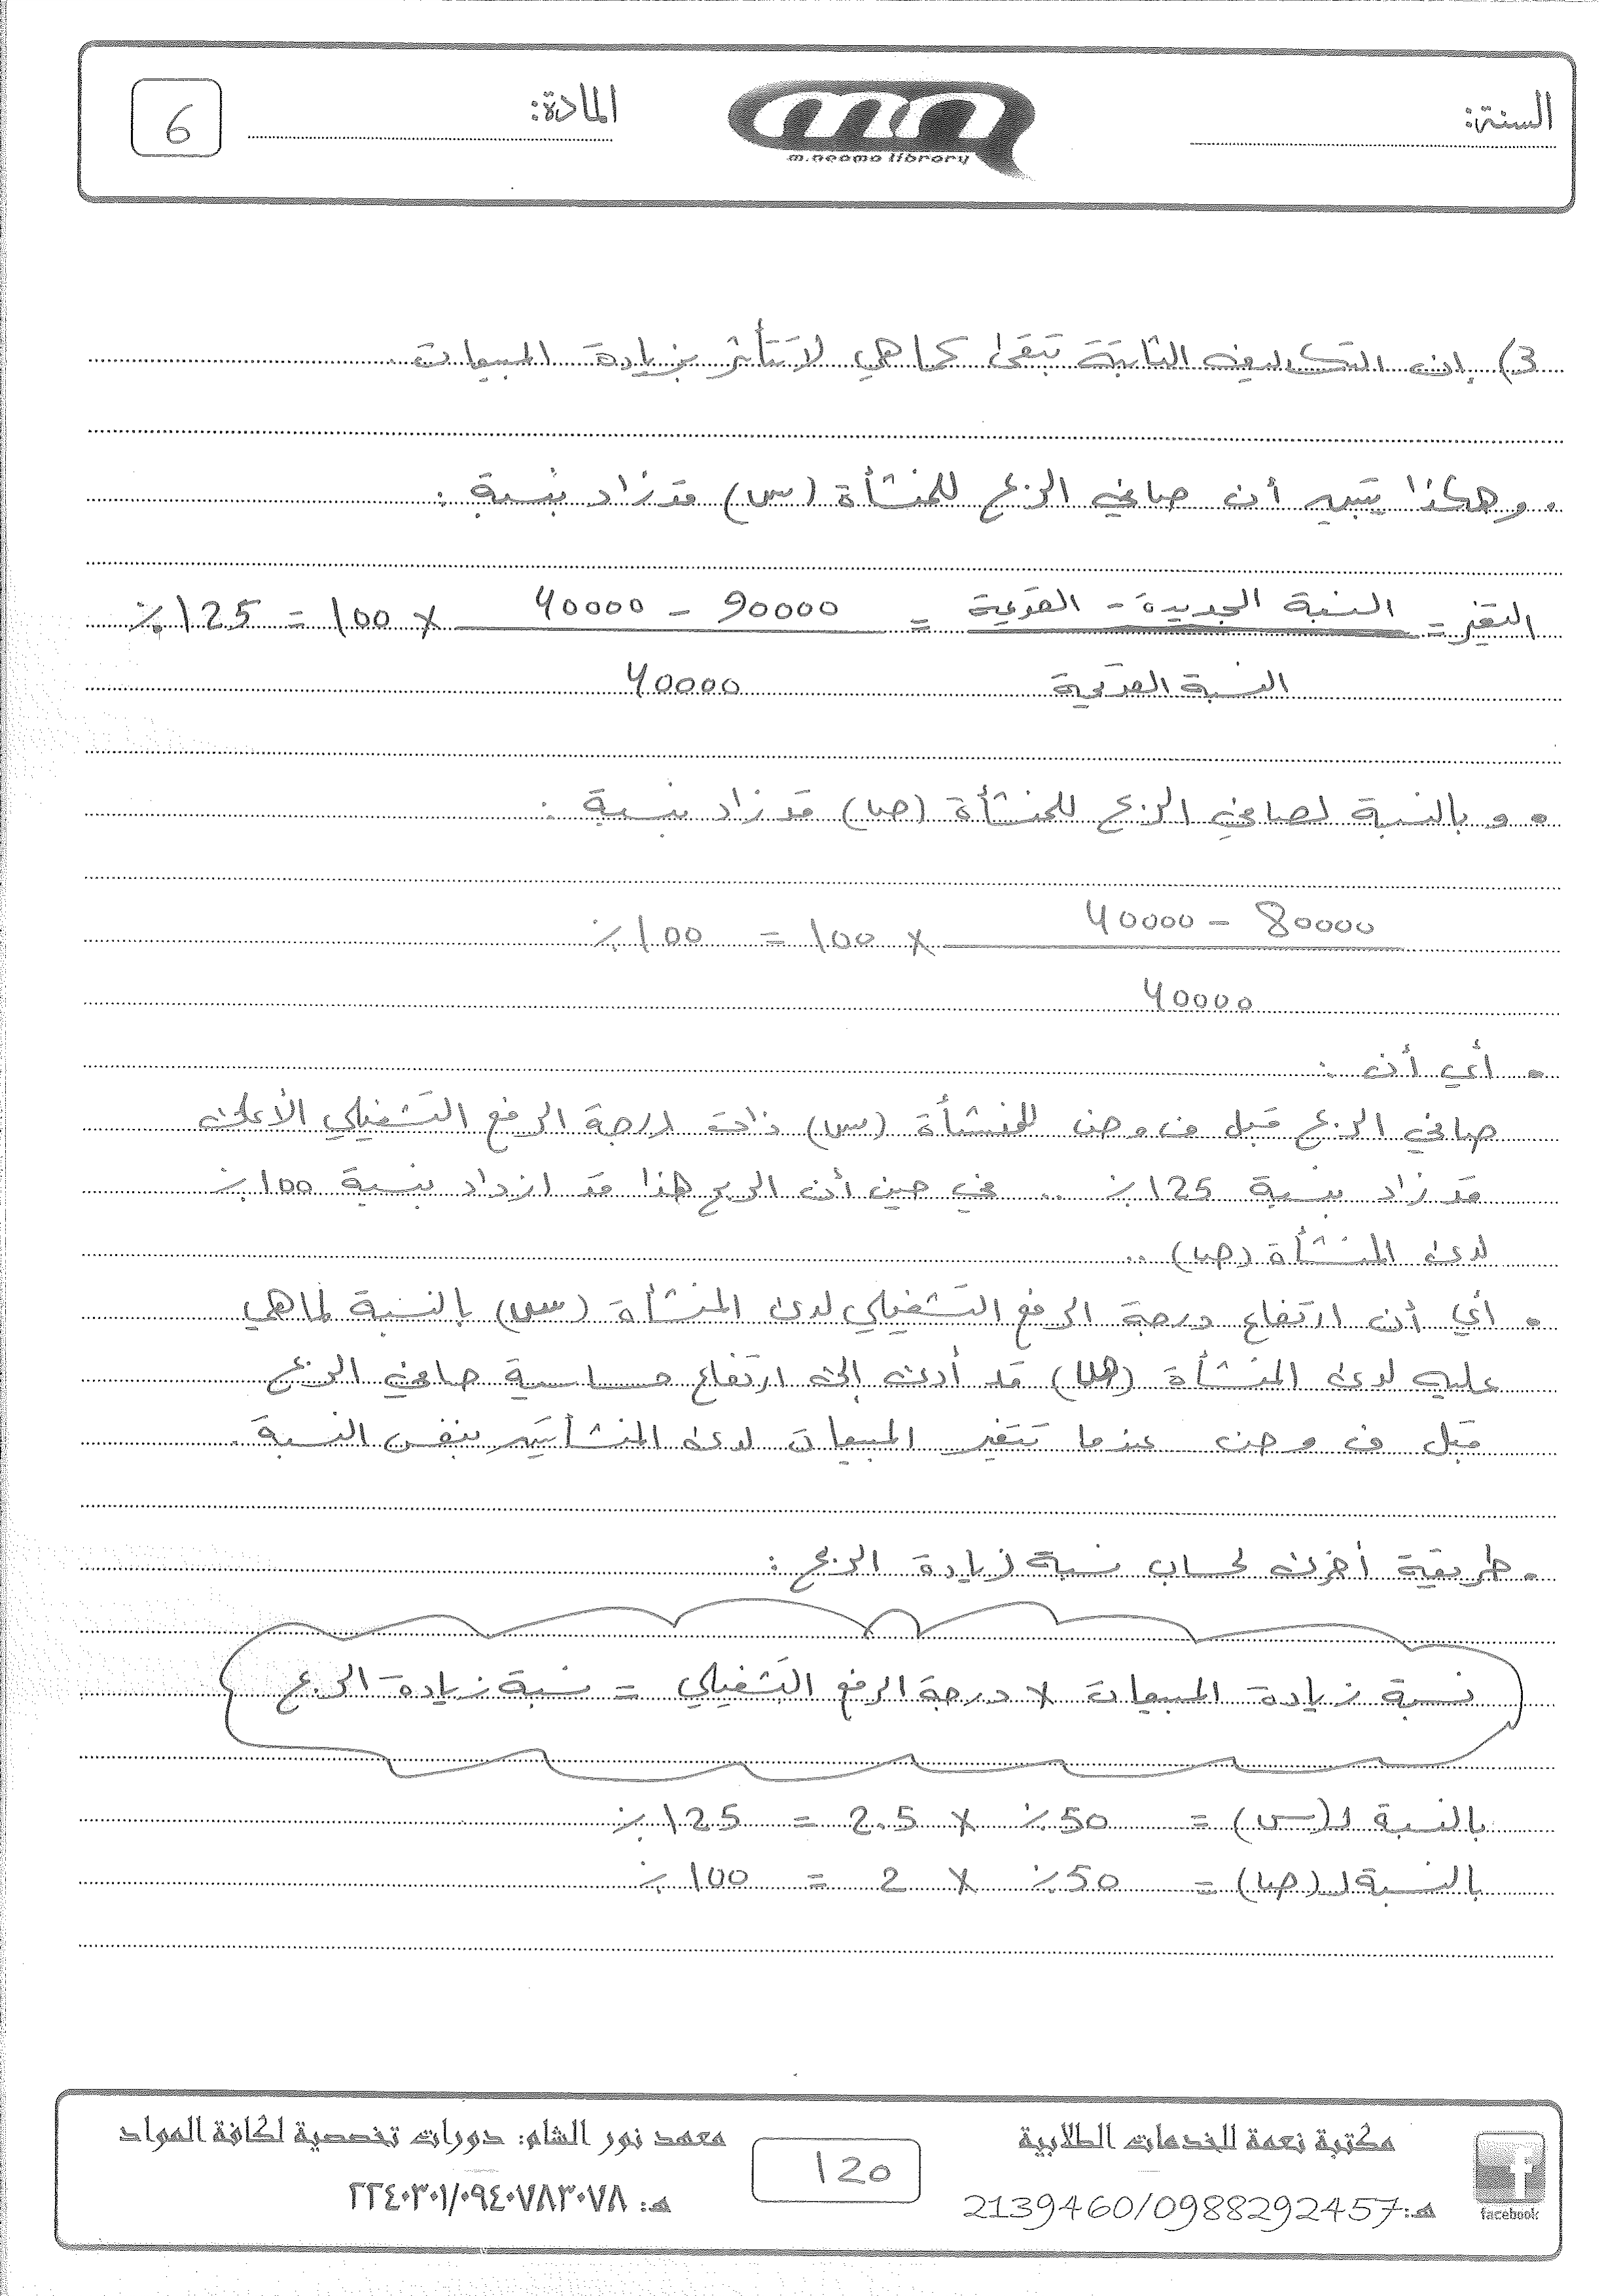 السنة:
المادة:
6
m.neama library
3) إن التكاليف الثابتة تبقى كما هي لا تتأثر بزيادة المبيعات.
• وهكذا يتبين أن صافي الربح للمنشأة (س) قد زاد بنسبة :
التغير = النسبة الجديدة - القديمة = 90000 - 40000 × 100 = 125 ٪
النسبة القديمة 40000
• و بالنسبة لصافي الربح للمنشأة (ص) قد زاد بنسبة :
80000 - 40000 × 100 = 100 ٪
40000
• أي أن :
صافي الربح قبل ف و ض للمنشأة (س) ذات درجة الرفع التشغيلي الأعلى
قد زاد بنسبة 125 ٪ .. في حين أن الربح هذا قد ازداد بنسبة 100 ٪
لدى المنشأة (ص) ..
• أي أن ارتفاع درجة الرفع التشغيلي لدى المنشأة (س) بالنسبة لما هي
عليه لدى المنشأة (ص) قد أدى إلى ارتفاع حساسية صافي الربح
قبل ف و ض عندما تتغير المبيعات لدى المنشأتين بنفس النسبة.
• طريقة أخرى لحساب نسبة زيادة الربح :
نسبة زيادة المبيعات × درجة الرفع التشغيلي = نسبة زيادة الربح
بالنسبة لـ (س) = 50 ٪ × 2.5 = 125 ٪
بالنسبة لـ (ص) = 50 ٪ × 2 = 100 ٪
مكتبة نعمة للخدمات الطلابية
هـ: 2139460/0988292457
facebook
120
معهد نور الشام: دورات تخصصية لكافة المواد
هـ: ٢٢٤٠٣٠١/٠٩٤٠٧٨٣٠٧٨